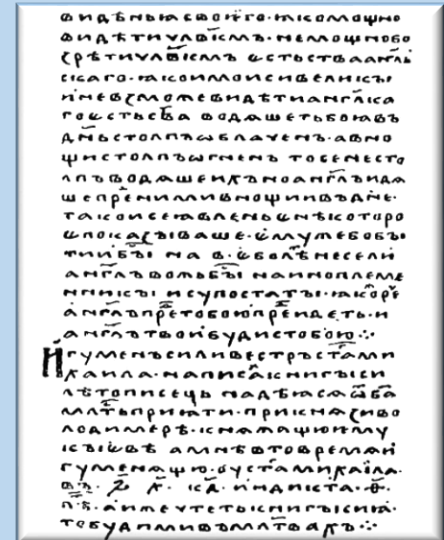 видѣньꙗсвоѥго·ꙗкомощно
видѣтичл҃вкмъ·немощнобо
зрѣтичл҃вкмъ єстьстваанг҃ль
скаго·ꙗкоимоисивеликъı
иневзможевидѣтианг҃лска
гоєстьства водѧшетьбоꙗвъ
дн҃ьстолпъѡблаченъ·авно
щистолпъѡгненъ тосенесто
лпъводѧшеихъноанг҃лъидѧ
шепре҇нимивнощиивъдн҃е·
такоисеꙗвленьєнѣкоторо
єпоказъıваше·ємужебобъı
тиибъı на в҃·єболѣнесели
анг҃лъвольбъı наиноплеме
нникъı исупостатъı·ꙗкоре҇ч
анг҃лъпре҇тобоюпреидеть·и
анг҃лътвоибудистобою·:·
Игуменъсиливестръст҃гоми
хаила·написахкнигъıси
лѣтописець надѣꙗсѧѿб҃а
млс҃тьприꙗти·прикнѧзиво
лодимерѣ·кнѧжащюѥму
къıєвѣ амнѣвтовремѧи
гуменѧщю·оуст҃гомихаила·
въ·҂ѕ҃·х҃·к҃д·индикта·ѳ҃·
лѣ҇·аижечтетькнигъıсиꙗ·
тобудиимивъмл҃твахъ·:·